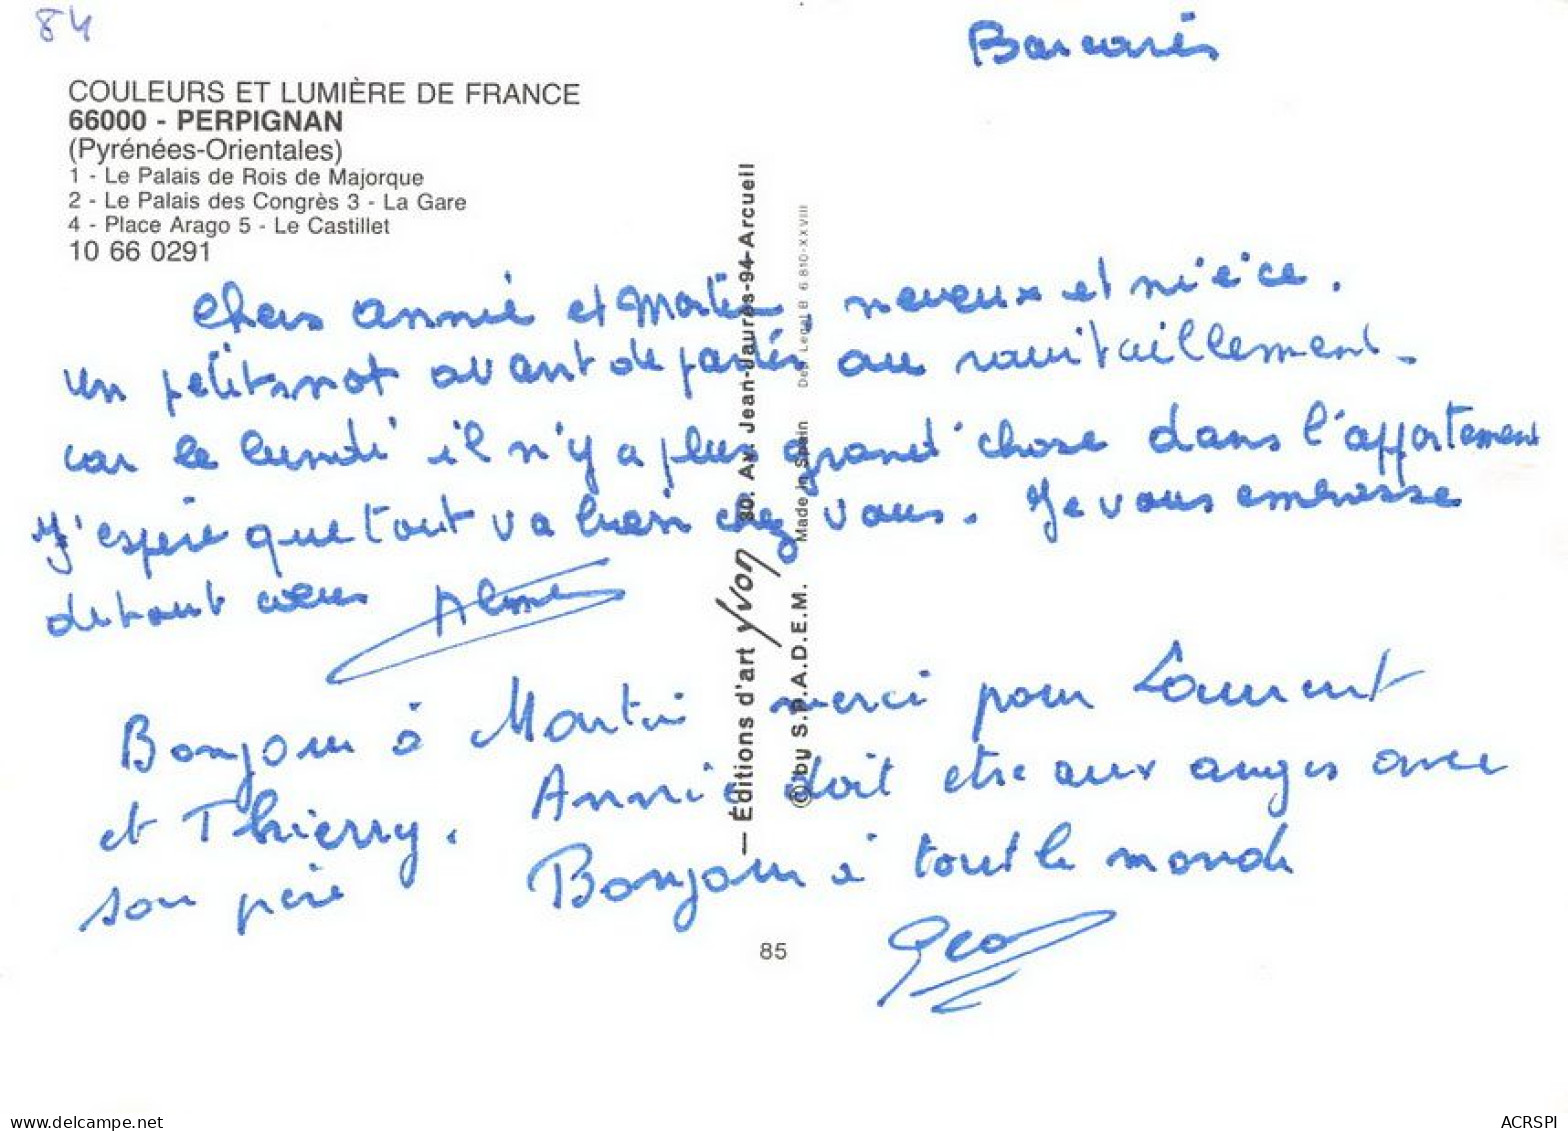 84
Barcarés
COULEURS ET LUMIÈRE DE FRANCE
66000 - PERPIGNAN
(Pyrénées-Orientales)
1 - Le Palais de Rois de Majorque
2 - Le Palais des Congrès 3 - La Gare
4 - Place Arago 5 - Le Castillet
10 66 0291
Chers Annie et Martin, neveux et nièce.
un petit mot avant de partir au ravitaillement.
car le lundi il n'y a plus grand'chose dans l'appartement
J'espère que tout va bien chez vous. Je vous embrasse
de tout cœur
Bonjour à Martin merci pour Laurent
et Thierry. Annie doit etre aux anges avec
son père Bonjour à tout le monde
Geo
— Éditions d'art Yvon 80. Av. Jean-Jaurès-94-Arcueil
© by S.P.A.D.E.M. Made in Spain Dep. Legal B 6 810-XXVIII
85
https://www.delcampe.net
ACRSPI